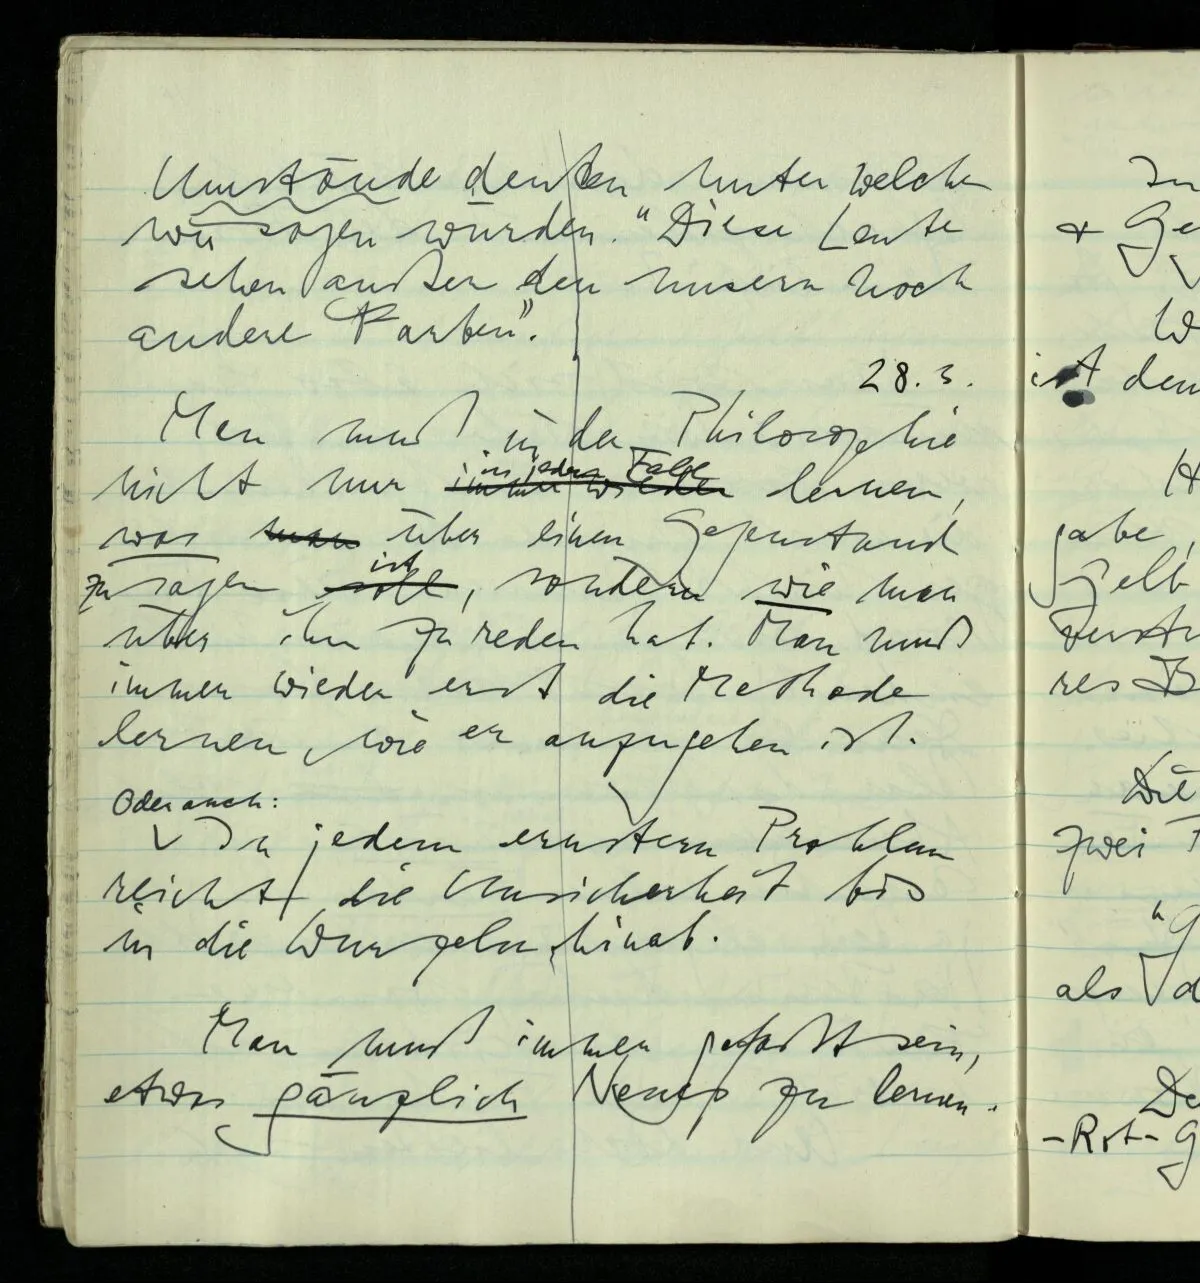 Umstände denken unter welchen
wir sagen würden. "Diese Leute
sehen außer den unsern noch
andere Farben".
28.3.
Man muß in der Philosophie
nicht nur immer wieder in jedem Falle lernen,
was man über einen Gegenstand
zu sagen soll ist, sondern wie man
über ihn zu reden hat. Man muß
immer wieder erst die Methode
lernen, wie er anzugehen ist.
Oder auch:
In jedem ernstern Problem
reicht die Unsicherheit bis
in die Wurzeln hinab.
Man muß immer gefaßt sein,
etwas gänzlich Neues zu lernen.
In
+ Ge
W
ist den
H
gabe,
Gelb
verstü
res B
Die
zwei F
"G
als d
De
-Rot-G